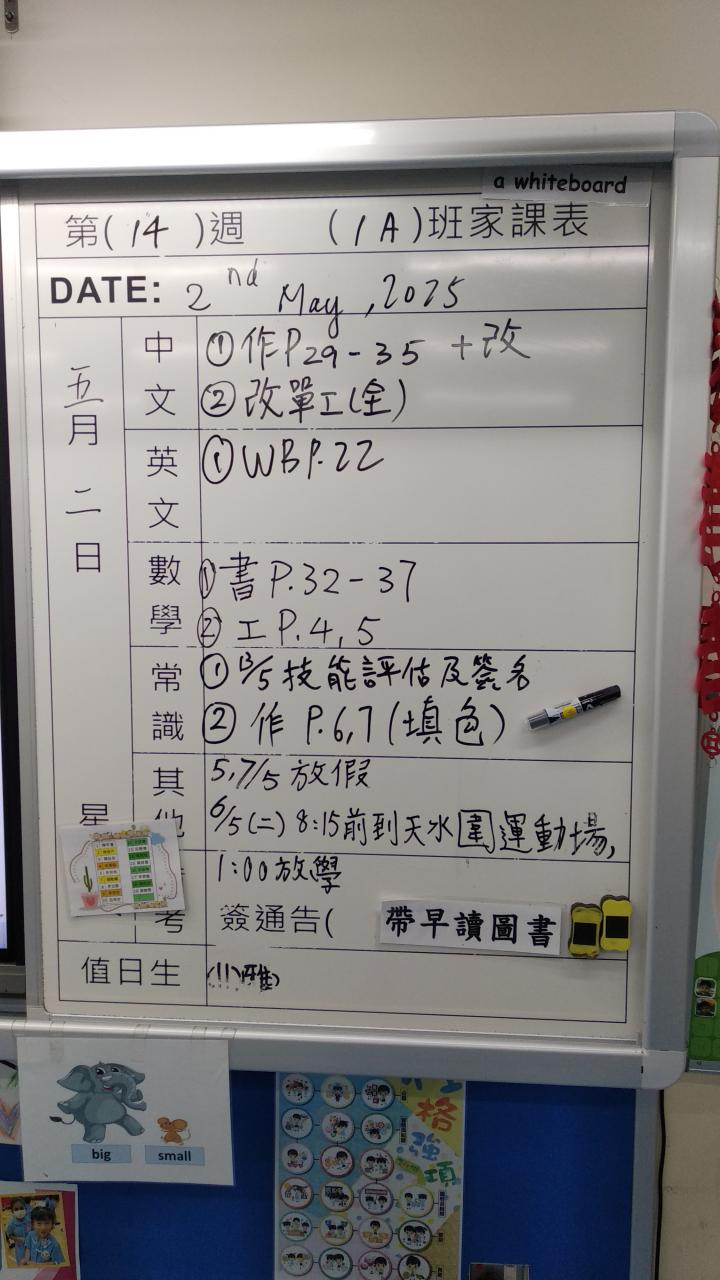 a whiteboard
第(14)週 (1A)班家課表
DATE: 2nd May, 2025
五月二日
星
中文
①作P29-35 +改
②改單工(全)
英文
①WBP.22
數學
①書P.32-37
②工P.4,5
常識
①13/5技能評估及簽名
②作P.6,7(填色)
其他
5,7/5放假
6/5(二)8:15前到天水圍運動場,
1:00放學
考
簽通告(
帶早讀圖書
值日生
(11)雅
big
small
格
強
項